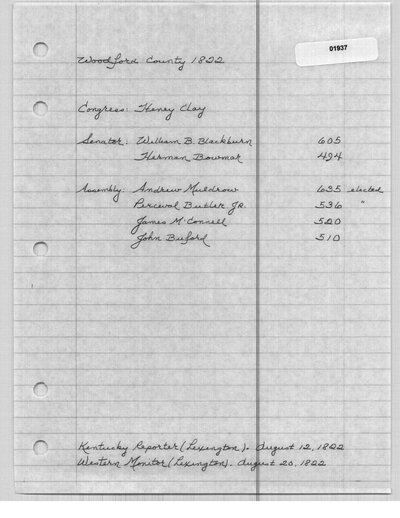 01937
Woodford County 1822
Congress: Henry Clay
Senator: William B. Blackburn 605
Herman Bowmar 494
Assembly: Andrew Muldrow 635 elected
Percival Butler Jr. 536 "
James McConnell 520
John Buford 510
Kentucky Reporter (Lexington). August 12, 1822
Western Monitor (Lexington). August 20, 1822